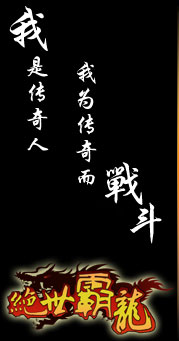 我是传奇人
我为传奇而
戰斗
絕世霸龍